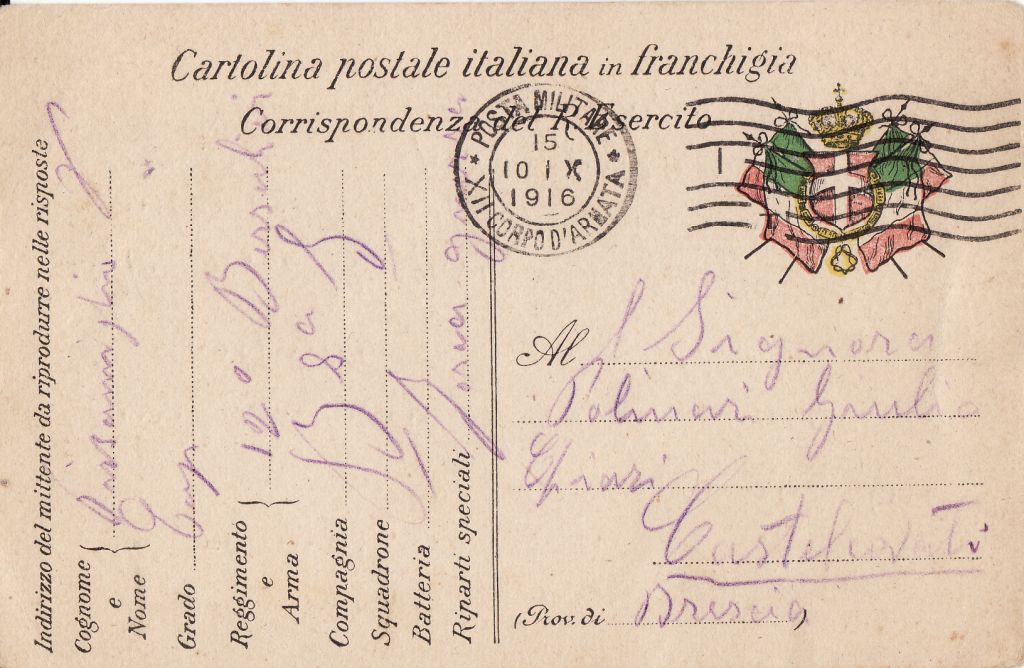 Cartolina postale italiana in franchigia
Corrispondenza del R. Esercito
POSTA MILITARE
15
10 IX
1916
XII CORPO D'ARMATA
Indirizzo del mittente da riprodurre nelle risposte
Cognome
e
Nome
Grado
Reggimento 12° Bersaglieri
e
Arma
Compagnia 8a
Squadrone
Batteria
Riparti speciali
Zona guerra
Al Signora
Polinari
Chiari
Castelcovati
(Prov. di Brescia)